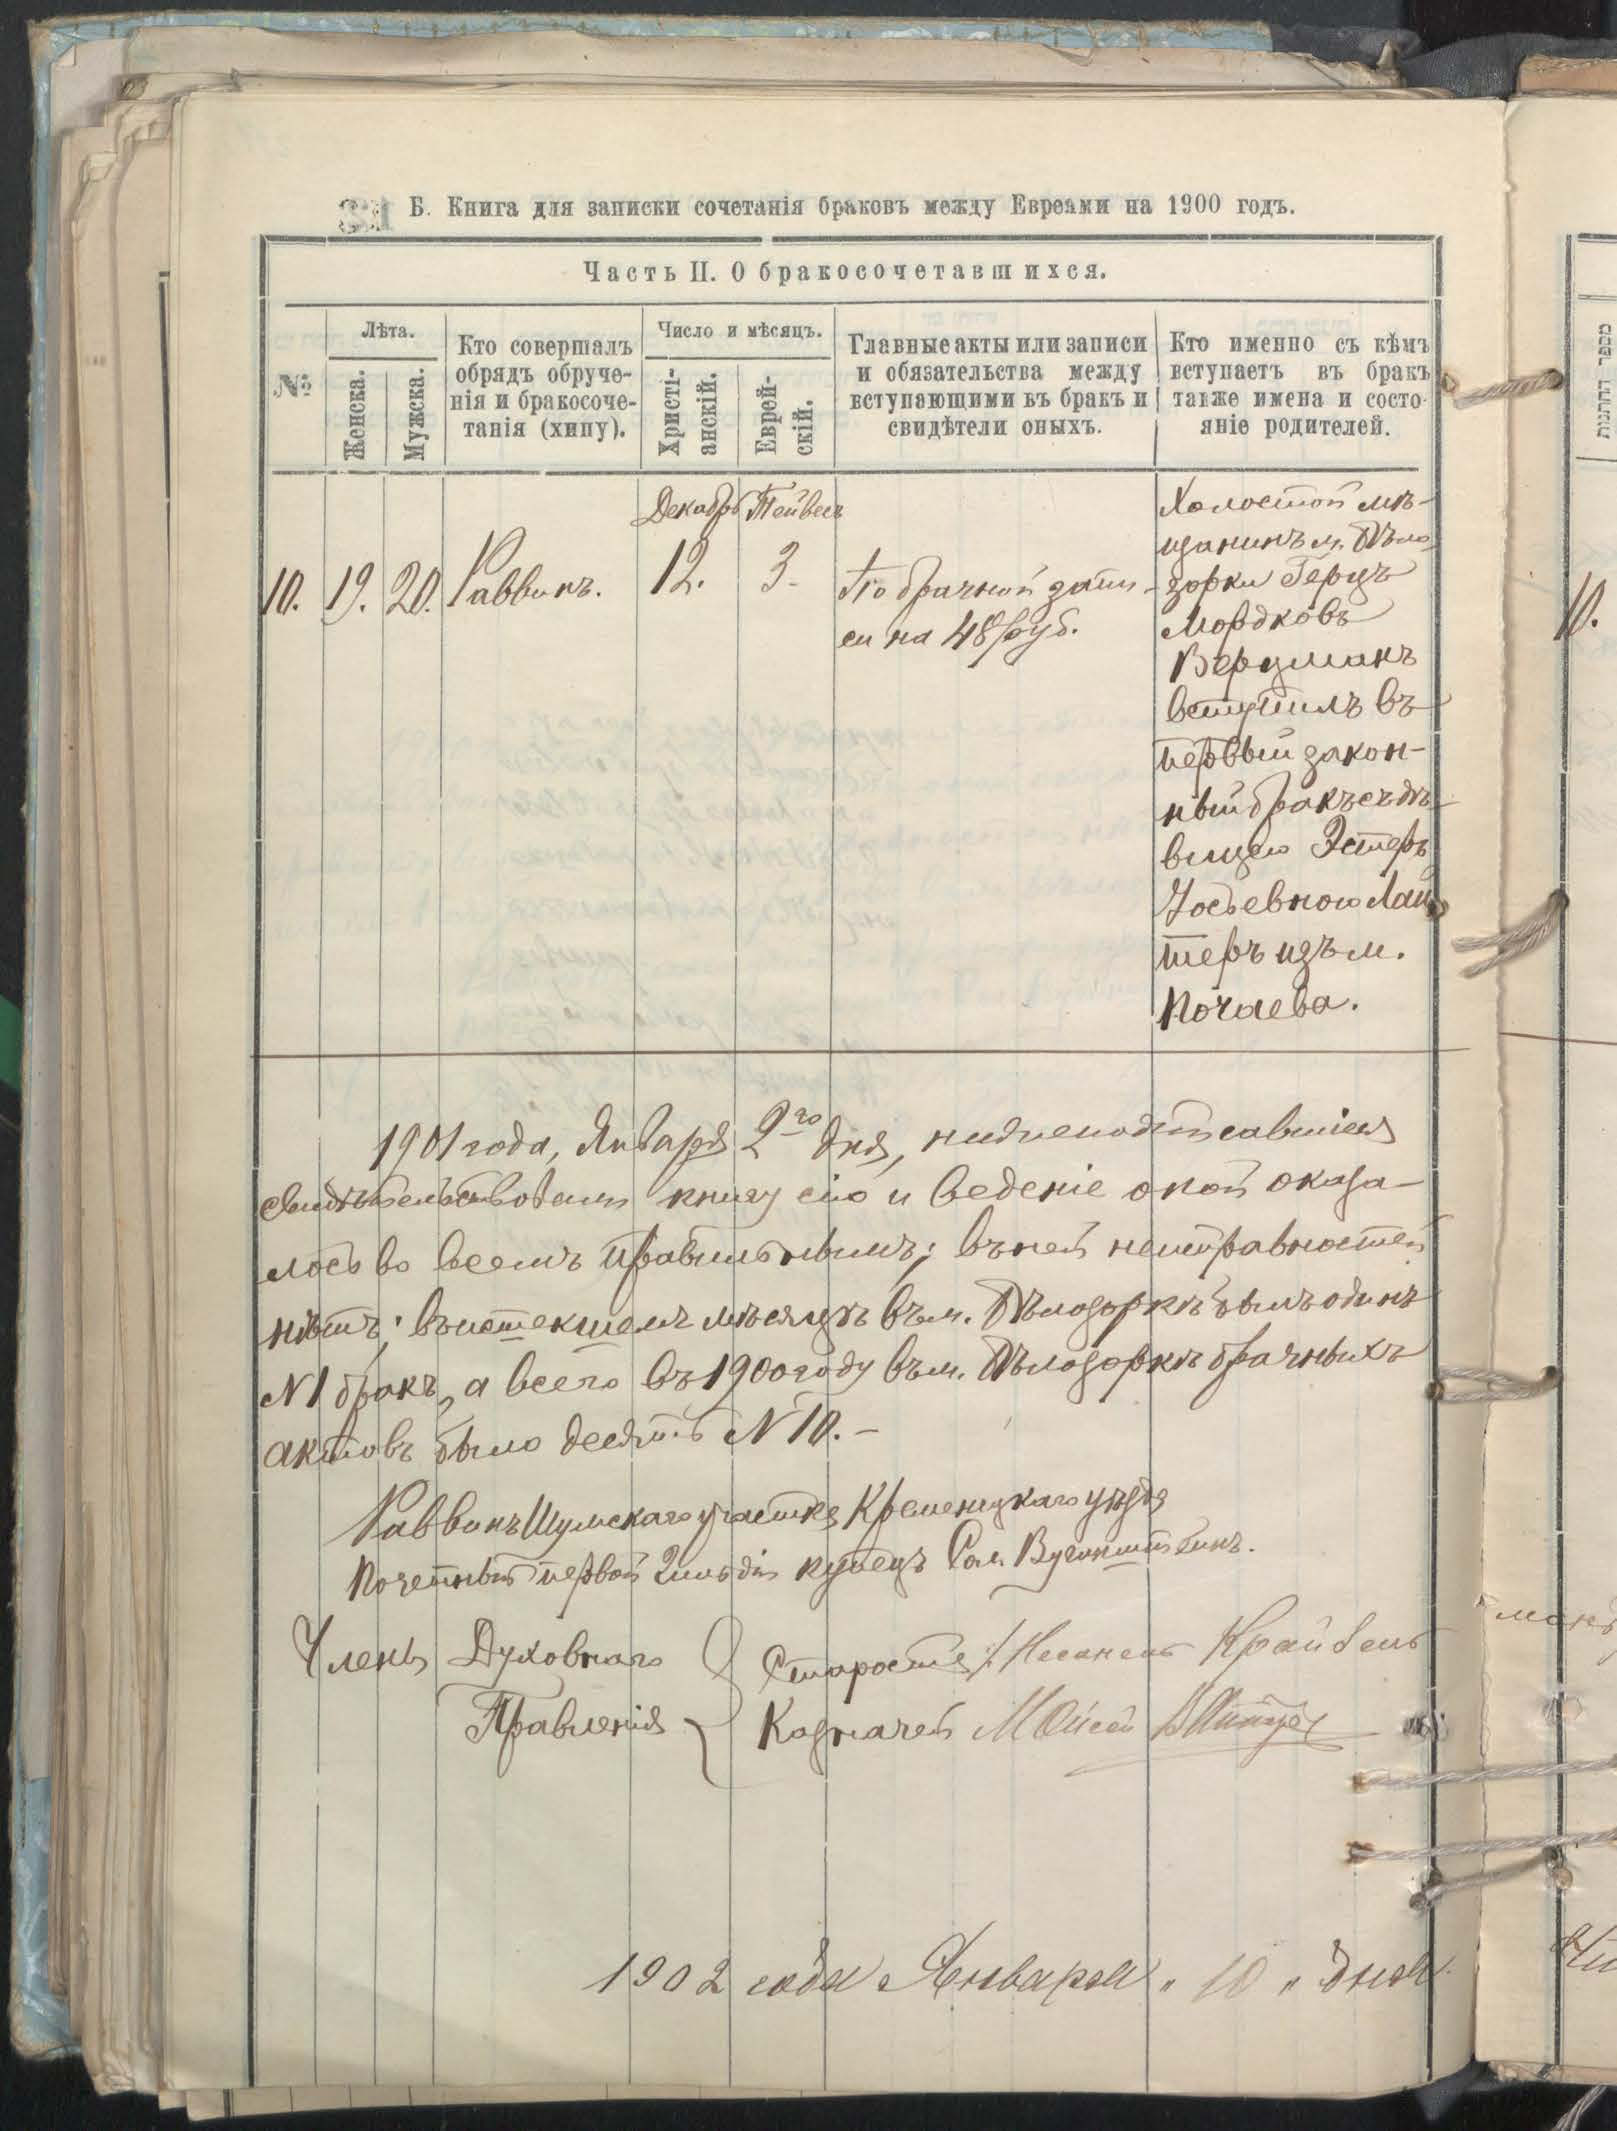 Б. Книга для записки сочетанія браковъ между Евреями на 1900 годъ.
Часть II. О бракосочетавшихся.
№
Лѣта.
Женска.
Мужска.
Кто совершалъ
обрядъ обруче-
нія и бракосоче-
танія (хипу).
Число и мѣсяцъ.
Христі-
анскій.
Еврей-
скій.
Главные акты или записи
и обязательства между
вступающими въ бракъ и
свидѣтели оныхъ.
Кто именно съ кѣмъ
вступаетъ въ бракъ
также имена и состо-
яніе родителей.
10.
19.
20.
Раввинъ.
Декабрь
12.
Тейвесъ
3.
По брачной запи-
си на 48 руб.
Холостой мѣ-
щанинъ м. Бѣло-
зорки Герцъ
Мордковъ
Верцманъ
вступилъ въ
первый закон-
ный бракъ съ дѣ-
вицею Эстеръ
Іосьевною Лай-
теръ изъ м.
Почаева.
1901 года, Января 2го дня, нижеподписавшіеся
свидѣтельствовали книгу сію и веденіе оной оказа-
лось во всемъ правильнымъ; въ ней неисправностей
нѣтъ; въ истекшемъ мѣсяцѣ въ м. Бѣлозоркѣ былъ одинъ
№ 1 бракъ, а всего въ 1900 году въ м. Бѣлозоркѣ брачныхъ
актовъ было десять № 10. –
Раввинъ Шумскаго участка Кременецкаго уѣзда
Почетный первой Гильдіи купецъ
Члены Духовнаго
Правленія
Староста
Казначей Мойсей
1902 года Января „ 10 „ дня
10.